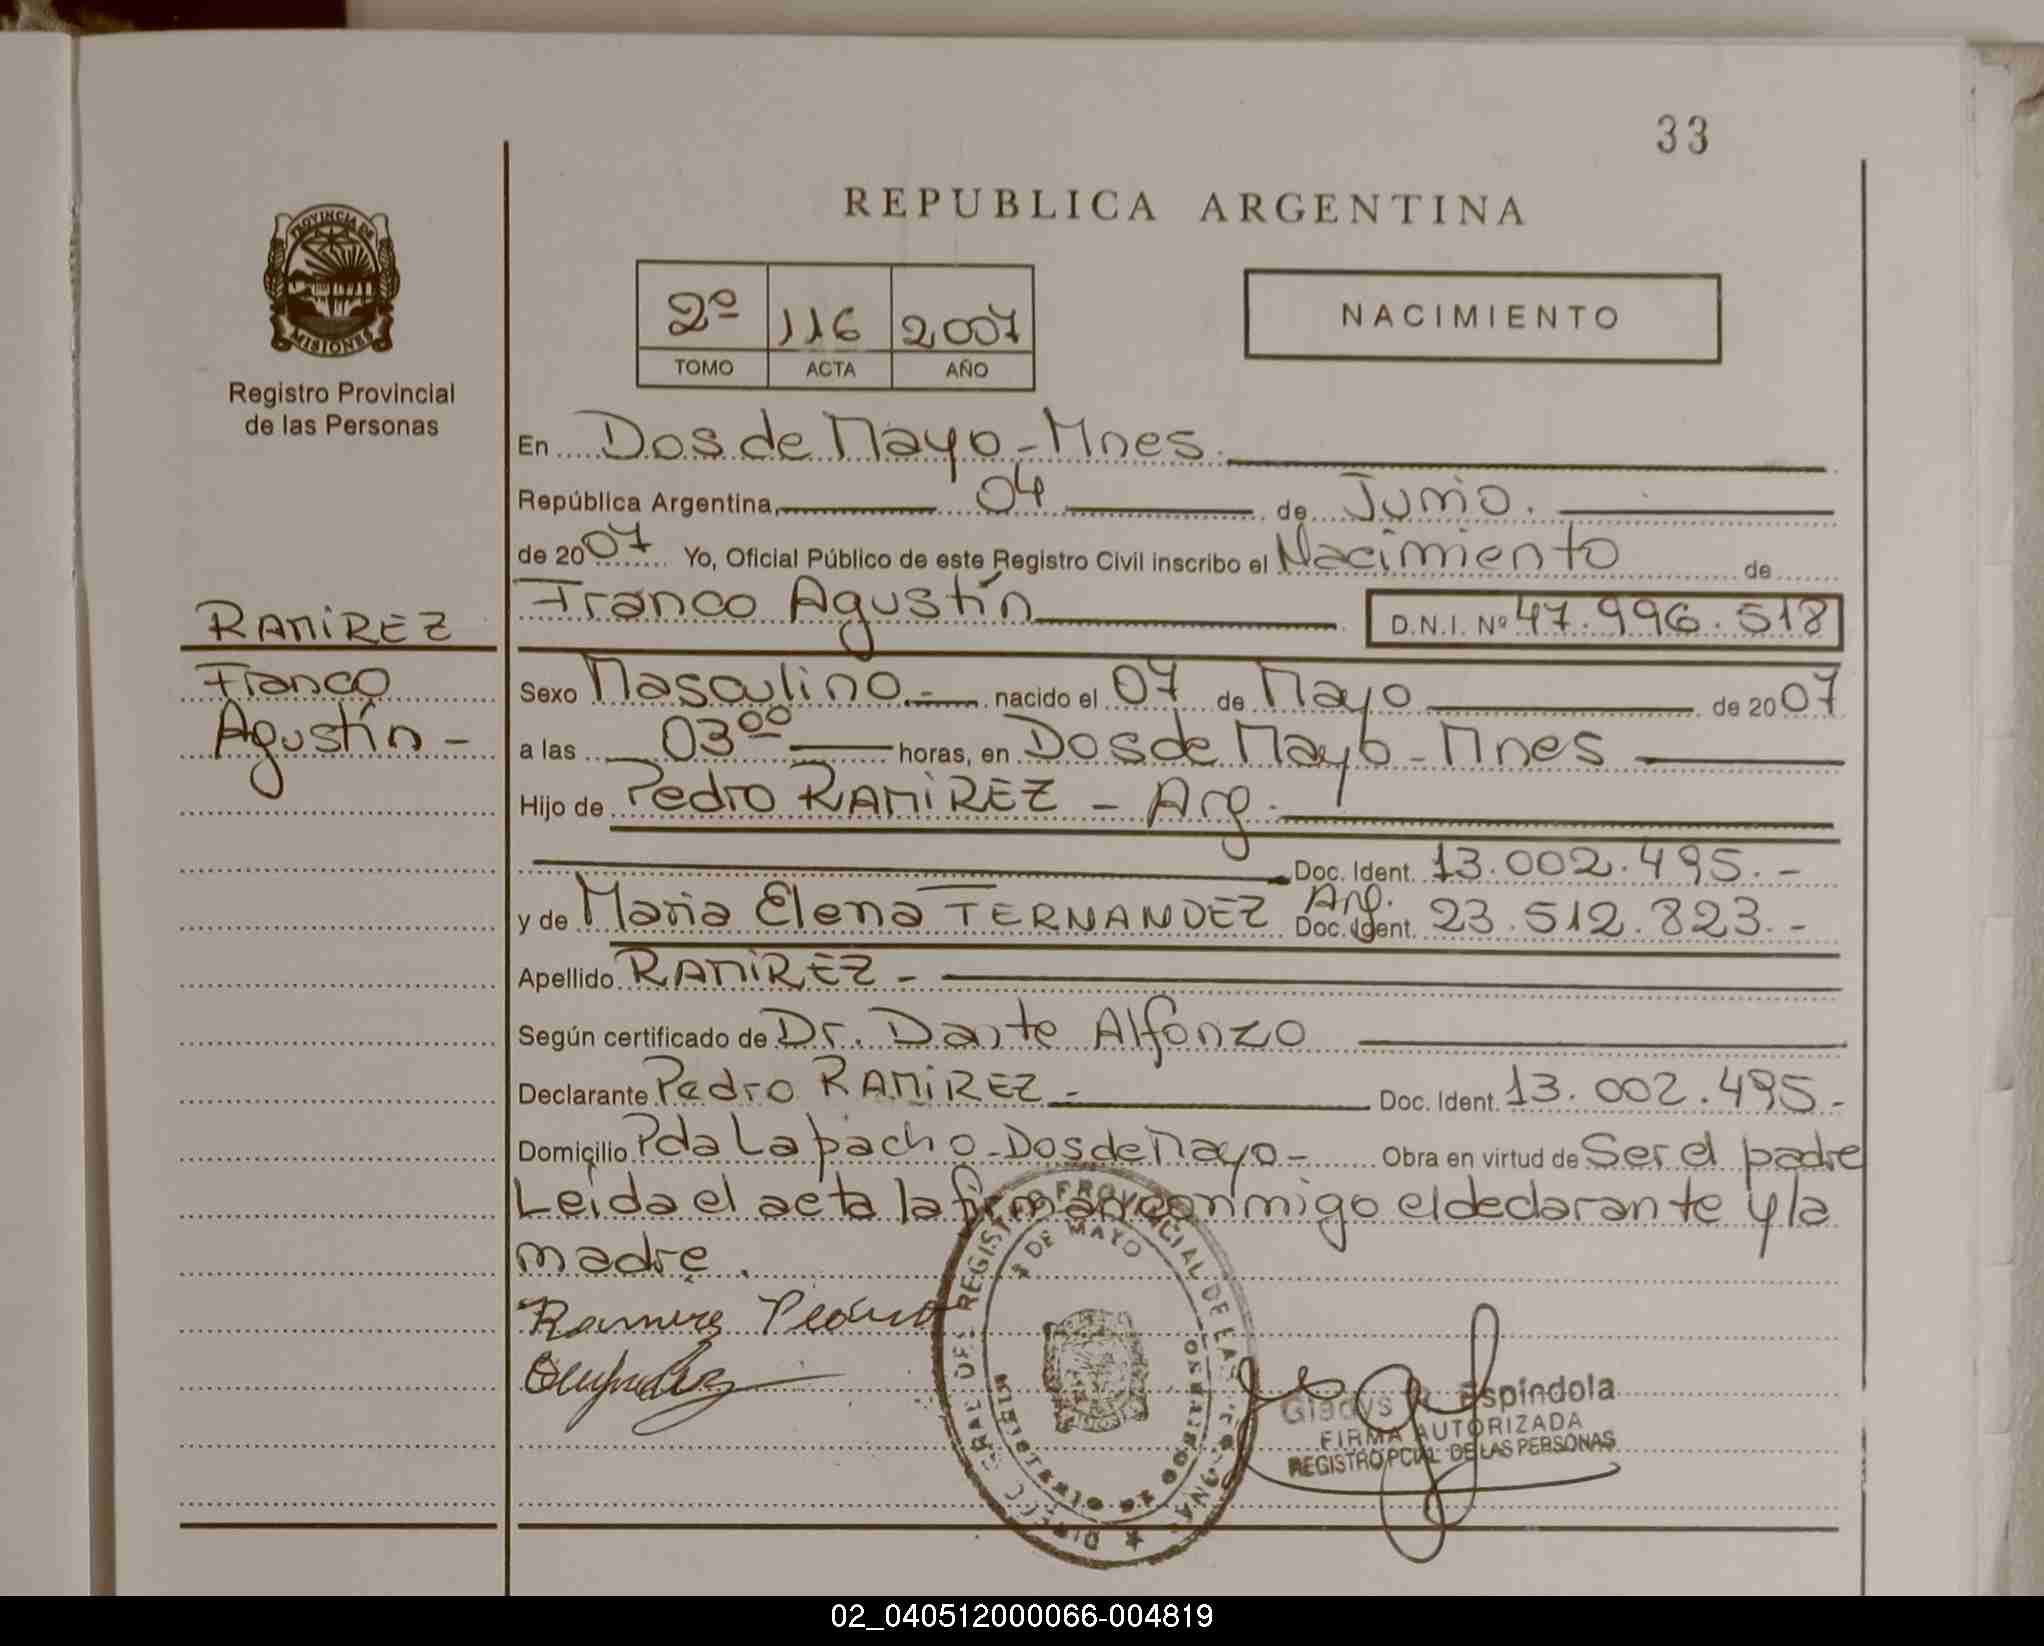 33
REPUBLICA ARGENTINA
PROVINCIA DE
MISIONES
Registro Provincial
de las Personas
2º 116 2007
TOMO ACTA AÑO
NACIMIENTO
En Dos de Mayo - Mnes.
República Argentina, 04 de Junio.
de 2007 Yo, Oficial Público de este Registro Civil inscribo el Nacimiento de
Franco Agustín D.N.I. Nº 47.996.518
RAMIREZ
Franco
Agustín -
Sexo Masculino.- nacido el 07 de Mayo de 2007
a las 03⁰⁰ horas, en Dos de Mayo - Mnes
Hijo de Pedro RAMIREZ - Arg.
Doc. Ident. 13.002.495.-
y de Maria Elena FERNANDEZ Arg. Doc. Ident. 23.512.823.-
Apellido RAMIREZ -
Según certificado de Dr. Dante Alfonzo
Declarante Pedro RAMIREZ - Doc. Ident. 13.002.495.-
Domicilio Pda Lapacho - Dos de Mayo - Obra en virtud de Ser el padre
Leida el acta la firman conmigo el declarante y la
madre.
Ramirez Pedro
REGISTRO PROVINCIAL DE LAS
DE MAYO
Gladys Espíndola
FIRMA AUTORIZADA
REGISTRO PCIAL DE LAS PERSONAS
02_040512000066-004819